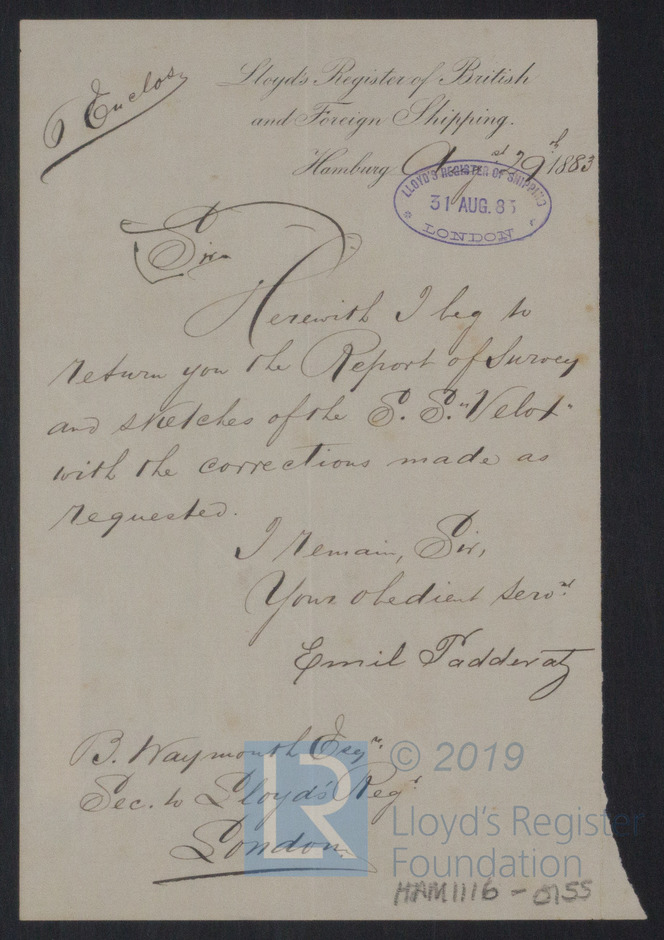 6 Enclos.
Lloyd's Register of British
and Foreign Shipping.
Hamburg August 29th 1883
LLOYD'S REGISTER OF SHIPPING
31 AUG. 83
LONDON
Sir
Herewith I beg to
return you the Report of Survey
and sketches of the S. S. "Velox"
with the corrections made as
requested.
I remain, Sir,
Your obedient servt
Emil Padderatz
B. Waymouth Esqr.
Sec. to Lloyd's Regr
London.
LR
© 2019
Lloyd's Register
Foundation
HAM1116 - 0155